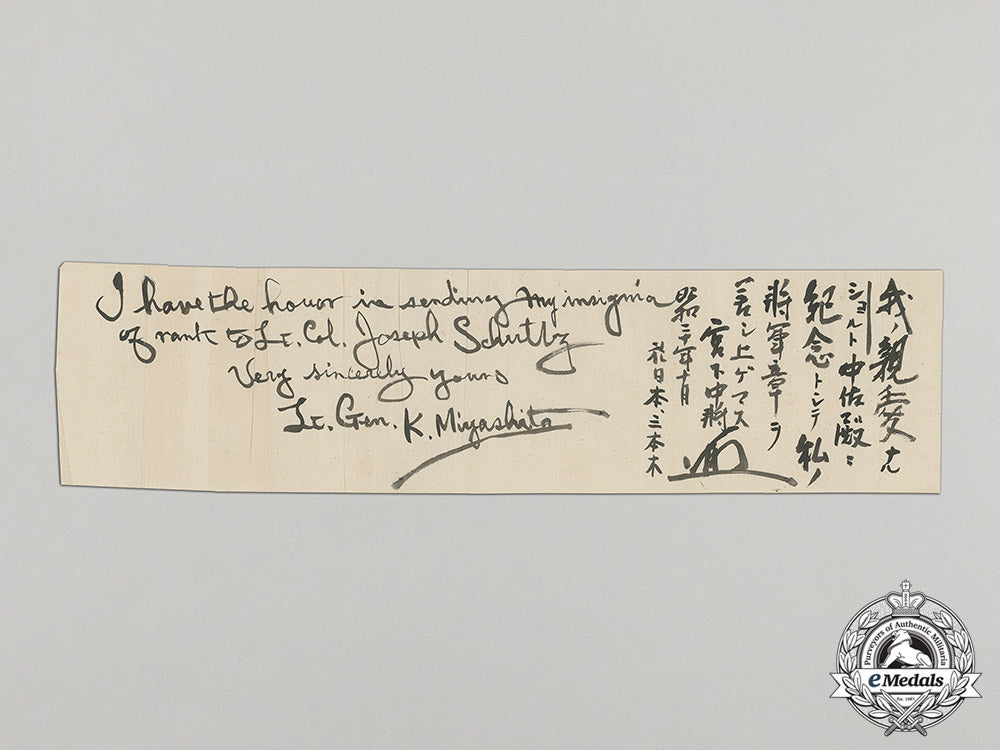 I have the honor in sending my insignia
of rank to Lt. Col. Joseph Schultz
Very sincerely yours
Lt. Gen. K. Miyashita
我ノ親愛ナル
ショルト中佐殿ニ
紀念トシテ私ノ
将軍章ヲ
呈シ上ゲマス
宮下中将
昭和二十年十月
於日本、三本木
Purveyors of Authentic Militaria
eMedals
Est. 1985